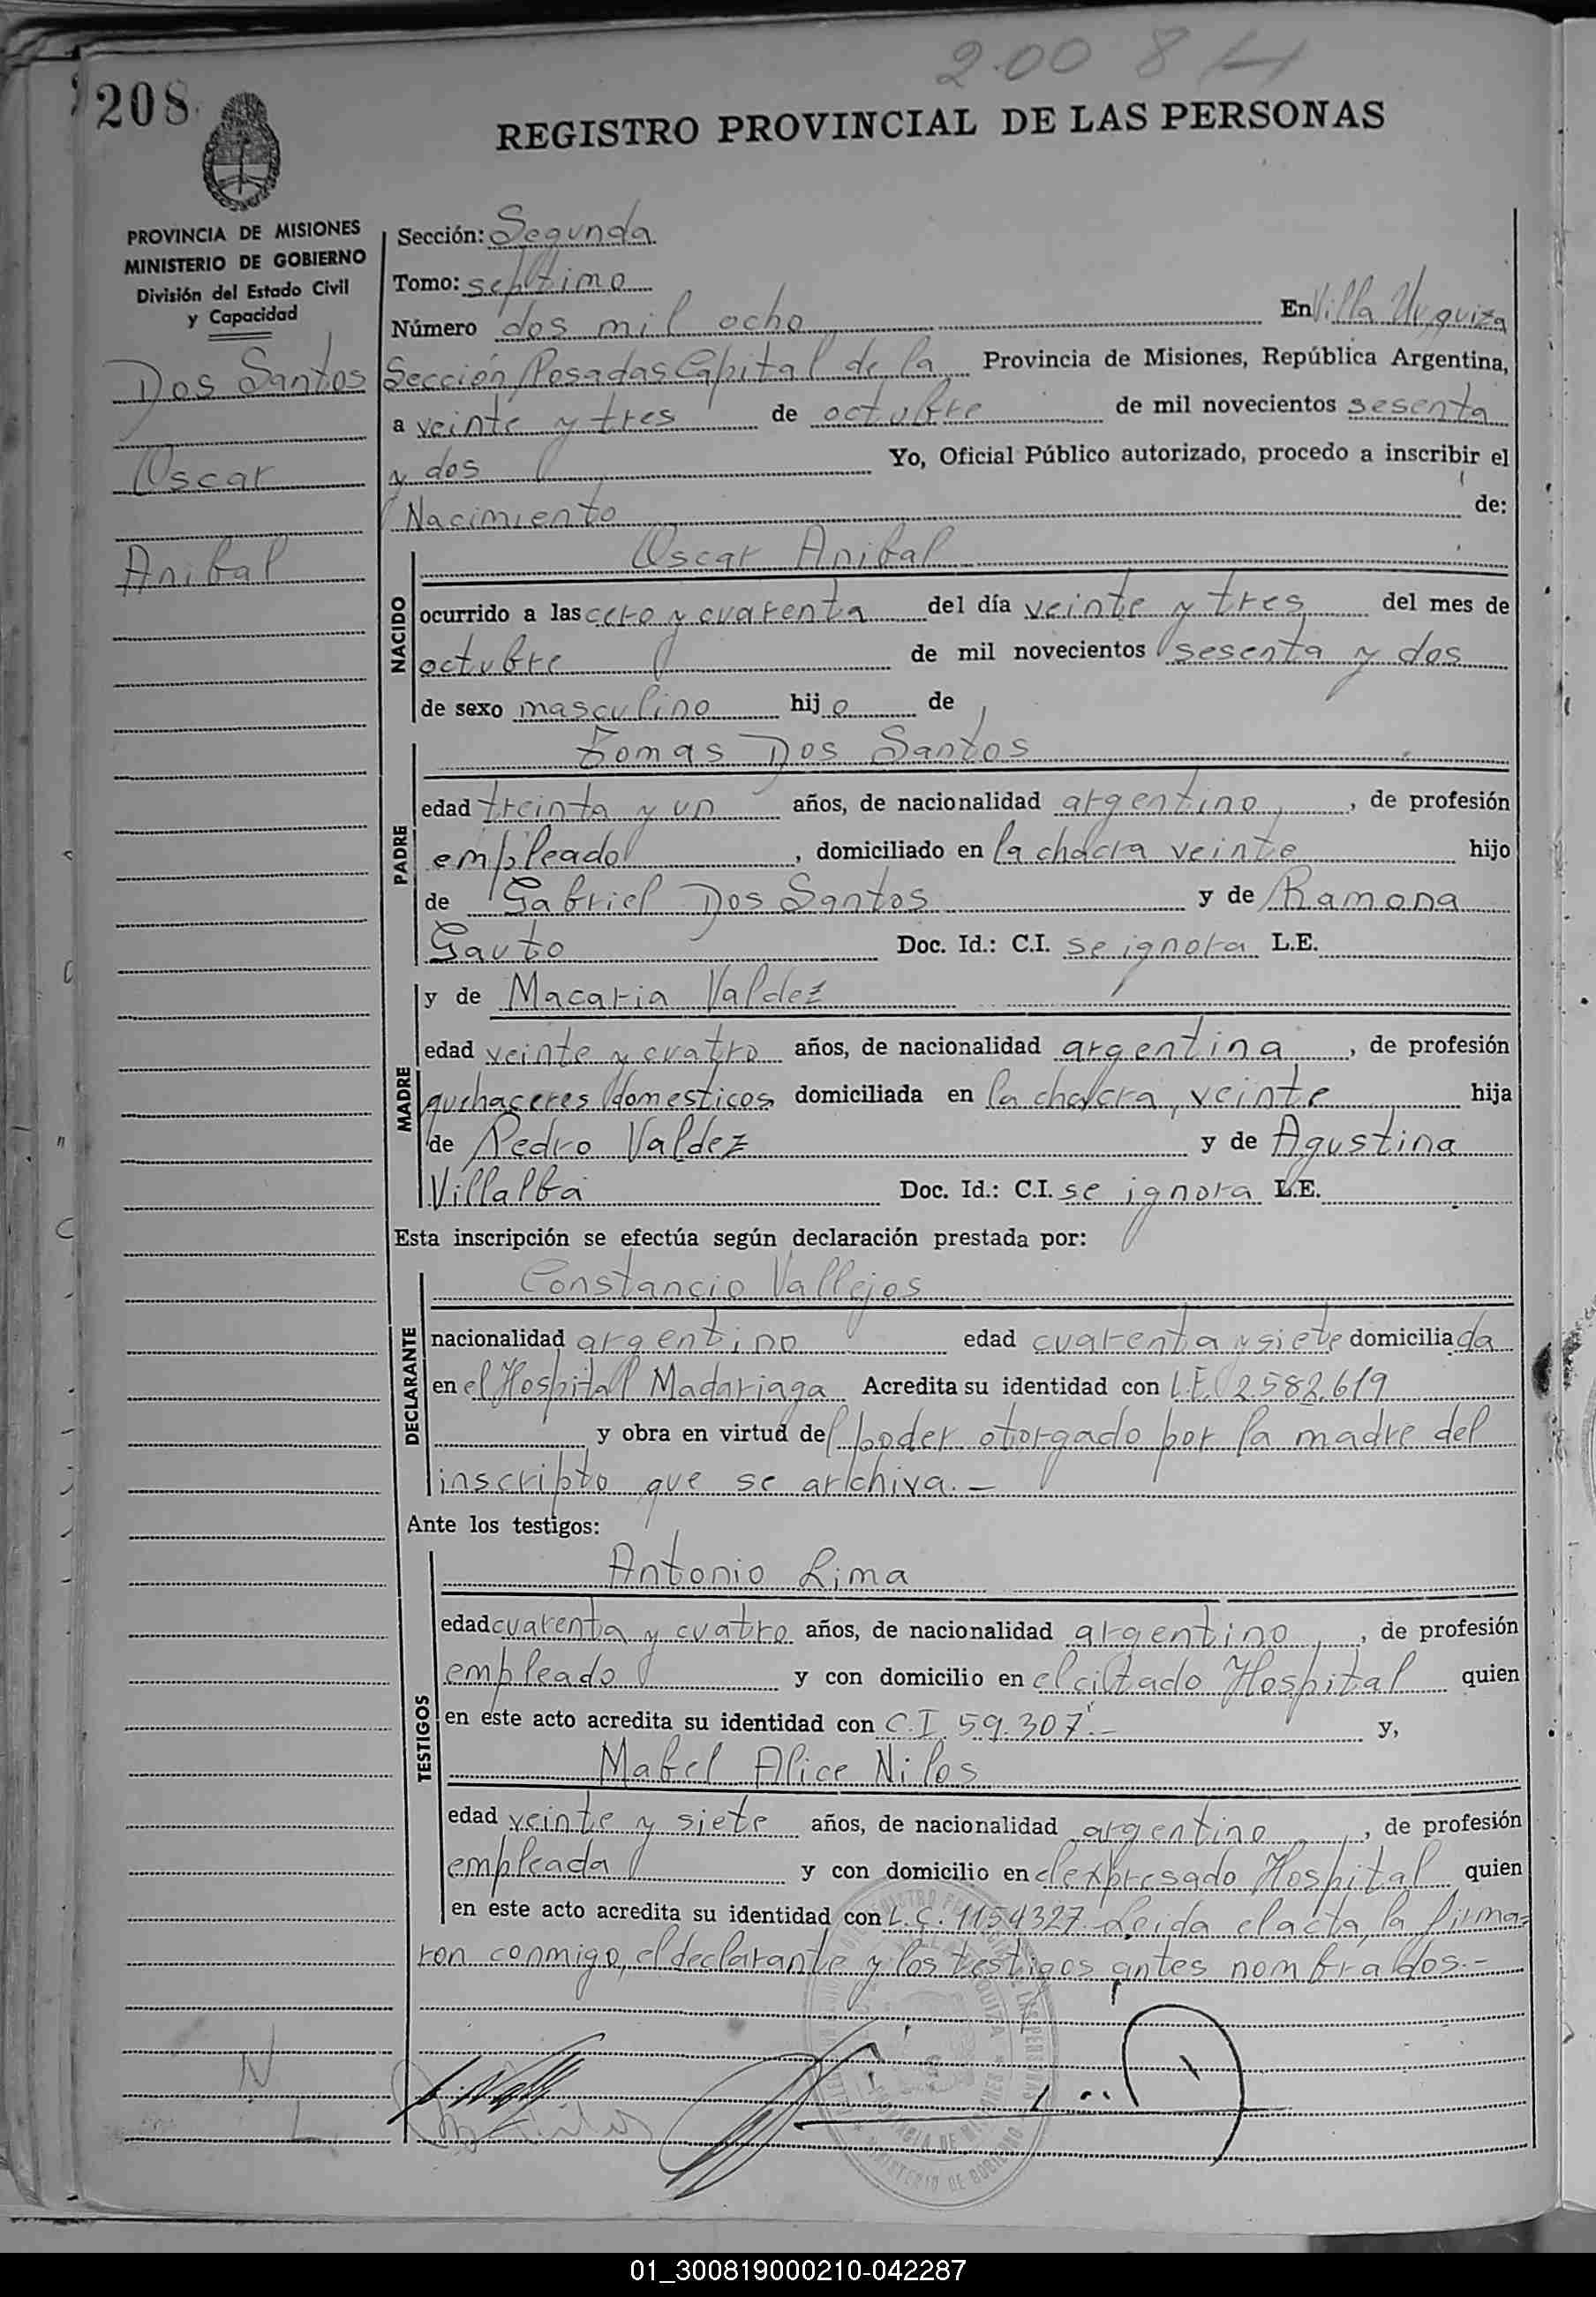 2.00 8
208
REGISTRO PROVINCIAL DE LAS PERSONAS
PROVINCIA DE MISIONES
MINISTERIO DE GOBIERNO
División del Estado Civil
y Capacidad
Dos Santos
Oscar
Anibal
Sección: Segunda
Tomo: septimo
Número dos mil ocho En Villa Urquiza
Sección Posadas Capital de la Provincia de Misiones, República Argentina,
a veinte y tres de octubre de mil novecientos sesenta
y dos Yo, Oficial Público autorizado, procedo a inscribir el
Nacimiento de:
NACIDO
Oscar Anibal
ocurrido a las cero y cuarenta del día veinte y tres del mes de
octubre de mil novecientos sesenta y dos
de sexo masculino hijo de
PADRE
Tomas Dos Santos
edad treinta y un años, de nacionalidad argentino, de profesión
empleado, domiciliado en la chacra veinte hijo
de Gabriel Dos Santos y de Ramona
Gauto Doc. Id.: C.I. se ignora L.E.
MADRE
y de Macaria Valdez
edad veinte y cuatro años, de nacionalidad argentina, de profesión
quehaceres domesticos domiciliada en la chacra, veinte hija
de Pedro Valdez y de Agustina
Villalba Doc. Id.: C.I. se ignora L.E.
Esta inscripción se efectúa según declaración prestada por:
DECLARANTE
Constancio Vallejos
nacionalidad argentino edad cuarenta y siete domiciliada
en el Hospital Madariaga Acredita su identidad con L.E. 2.582.619
y obra en virtud del poder otorgado por la madre del
inscripto que se archiva.-
Ante los testigos:
TESTIGOS
Antonio Lima
edad cuarenta y cuatro años, de nacionalidad argentino, de profesión
empleado y con domicilio en el citado Hospital quien
en este acto acredita su identidad con C.I. 59.307.- y,
Mabel Alice Nilos
edad veinte y siete años, de nacionalidad argentino, de profesión
empleada y con domicilio en el expresado Hospital quien
en este acto acredita su identidad con L.C. 1154327. Leida el acta, la firma=
ron conmigo, el declarante y los testigos antes nombrados.-
N
L
01_300819000210-042287